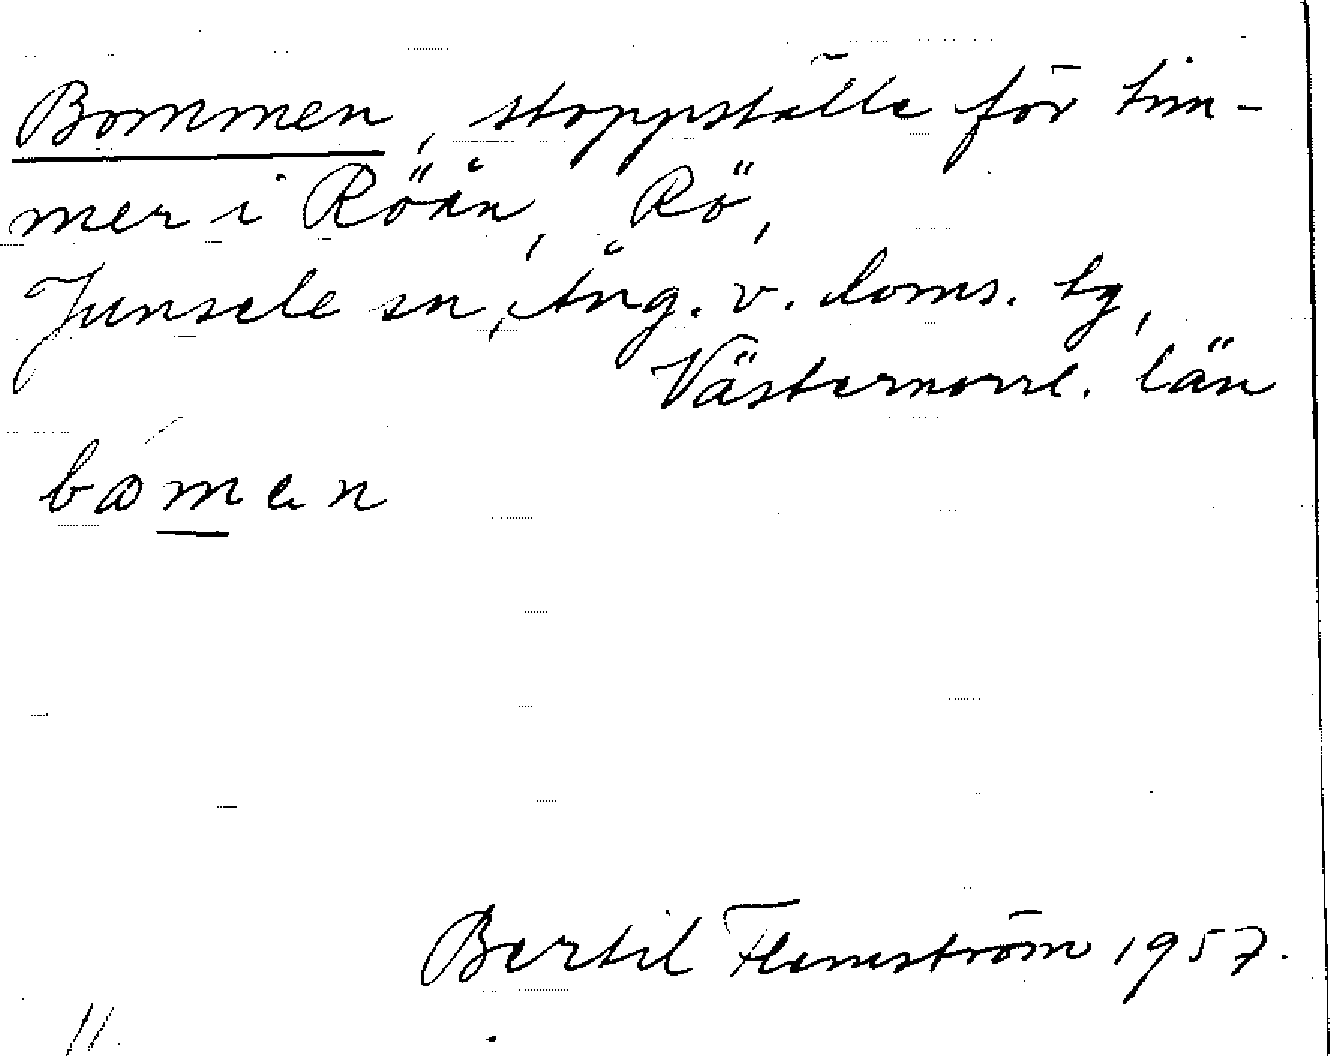 Bommen, stoppställe för tim-
mer i Röån, Rö,
Junsele sn, Ång. v. doms. lg,
Västernorrl. län
men
Bertil Flemström 1957.
11.